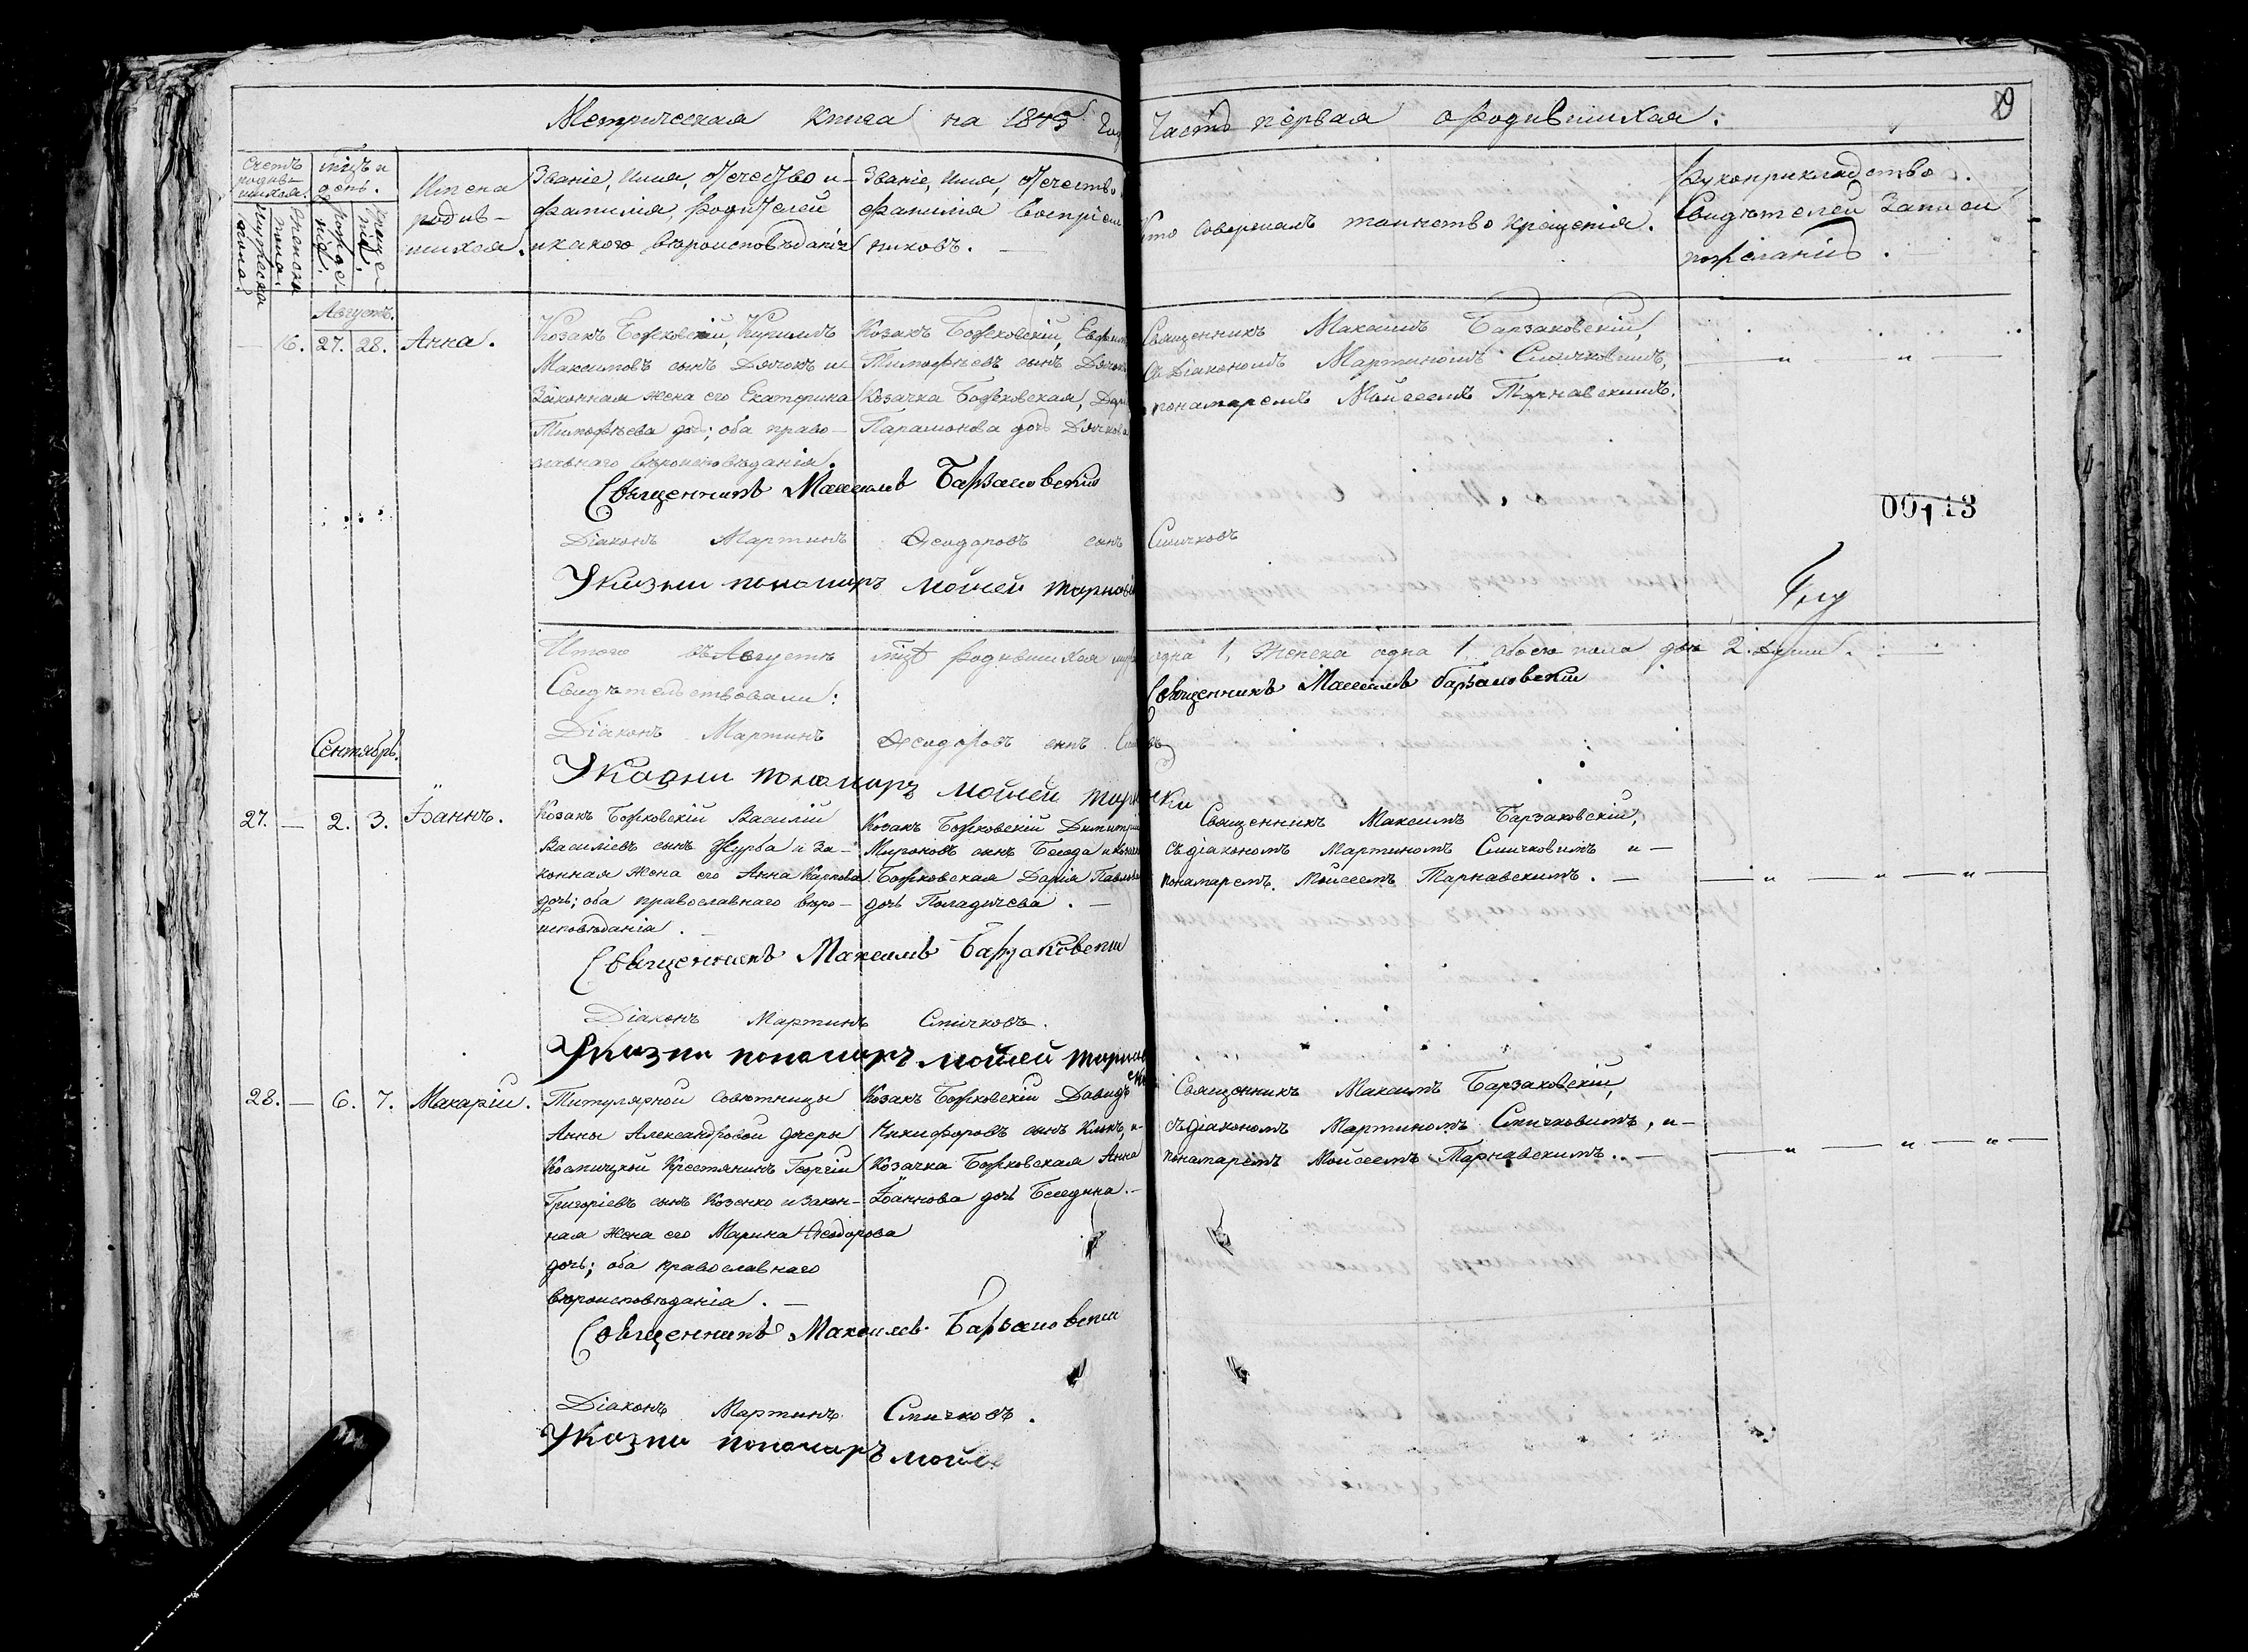 Метрическая книга на 1843 Года Часть первая о родившихся.
Счетъ родившихся.
Мѣсяцъ и день.
Имена родившихся.
Званіе, Имя, Отечество и фамилія, родителей и какого вѣроисповѣданія
Званіе, Имя, Отечество, фамилія Воспріемниковъ.
Кто совершалъ таинство крещенія.
Рукоприкладство Свидѣтелей Записи по желанію.
Мужеска пола.
Женска пола.
рожденія.
крещенія.
Августъ.
— 16. 27. 28. Анна.
Козакъ Божковскій, Кирилъ
Максимовъ сынъ Дячокъ и
Законная жена его Екатерина
Тимофѣева дочь; оба право-
славнаго вѣроисповѣданія.
Козакъ Божковскій, Евфим
Тимофѣевъ сынъ Дячок
Козачка Божковская, Дар
Парамонова дочь Дячкова
Священникъ Максимъ Барзаковскій,
съ Діакономъ Мартиномъ Смичковимъ,
понамаремъ Мойсеемъ Тарнавскимъ.
— „ — „ —
Священникъ Максимъ Барзаковскій
Діаконъ Мартинъ Феодоровъ сынъ Смичковъ
Указни понамарь Мойсей Тарнавс
00113
Итого въ Августѣ мѣсяцѣ родившихся муж одна 1, Женска одна 1 обоего пола двѣ 2. души.
Свидѣтельствовали:
Священникъ Максимъ Барзаковскій
Діаконъ Мартинъ Феодоровъ сынъ
Указни понамарь Мойсей
Сентябрь.
27. — 2. 3. Іоаннъ.
Козакъ Божковскій Василій
Василіевъ сынъ Журба и За-
конная жена его Анна Карпова
дочь; оба православнаго вѣро-
исповѣданія.
Козакъ Божковскій Димитрій
Мироновъ сынъ Беседа и Козач
Божковская Дарія Павлова
дочь Поладичева. —
Священникъ Максимъ Барзаковскій,
съ діакономъ Мартиномъ Смичковимъ и —
понамаремъ Мойсеемъ Тарнавскимъ. —
— „ — „ — „ —
Священникъ Максимъ Барзаковскій
Діаконъ Мартинъ Смичковъ.
Указни понамарь Мойсей Тарнавски
28. — 6. 7. Макарій.
Титулярной Совѣтницы
Анны Александровой дочеры
Козмицкой Крестянинъ Георгій
Григоріевъ сынъ Козенко и Закон-
ная жена его Марина Феодорова
дочь; оба православнаго
вѣроисповѣданія. —
Козакъ Божковскій Давидъ
Никифоровъ сынъ Клокъ, и-
Козачка Божковская Анна
Іоаннова дочь Беседина. —
Священникъ Максимъ Барзаковскій,
съ діакономъ Мартиномъ Смичковимъ, и —
понамаремъ Мойсеемъ Тарнавскимъ. —
— „ — „ — „ —
Священникъ Максимъ Барзаковскій
Діаконъ Мартинъ Смичковъ.
Указни понамарь Мойсе